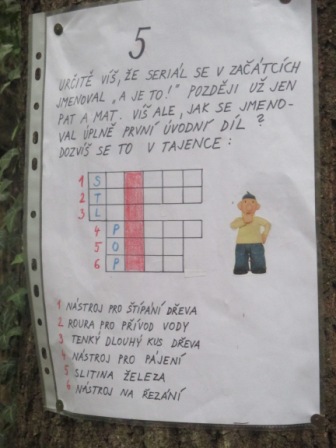 5
URČITĚ VÍŠ, ŽE SERIÁL SE V ZAČÁTCÍCH
JMENOVAL "A JE TO!" POZDĚJI UŽ JEN
PAT A MAT. VÍŠ ALE, JAK SE JMENO-
VAL ÚPLNĚ PRVNÍ ÚVODNÍ DÍL?
DOZVÍŠ SE TO V TAJENCE:
1 S
2 T
3 L
4 P
5 O
6 P
1 NÁSTROJ PRO ŠTÍPÁNÍ DŘEVA
2 ROURA PRO PŘÍVOD VODY
3 TENKÝ DLOUHÝ KUS DŘEVA
4 NÁSTROJ PRO PÁJENÍ
5 SLITINA ŽELEZA
6 NÁSTROJ NA ŘEZÁNÍ